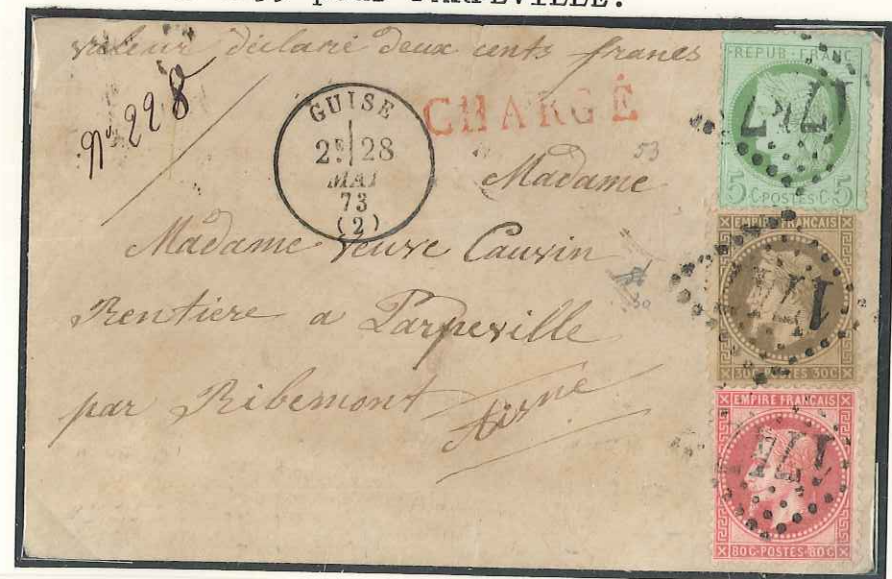 pour PARPEVILLE.
valeur déclaré deux cents francs
N° 228
CHARGÉ
GUISE
2E 28
MAI
73
(2)
53
Madame
Madame Veuve Cauvin
Rentiere a Parpeville
par Ribemont
Aisne
30
REPUB FRANC
5 C POSTES C 5
EMPIRE FRANCAIS
30C POSTES 30C
EMPIRE FRANCAIS
80C POSTES 80C